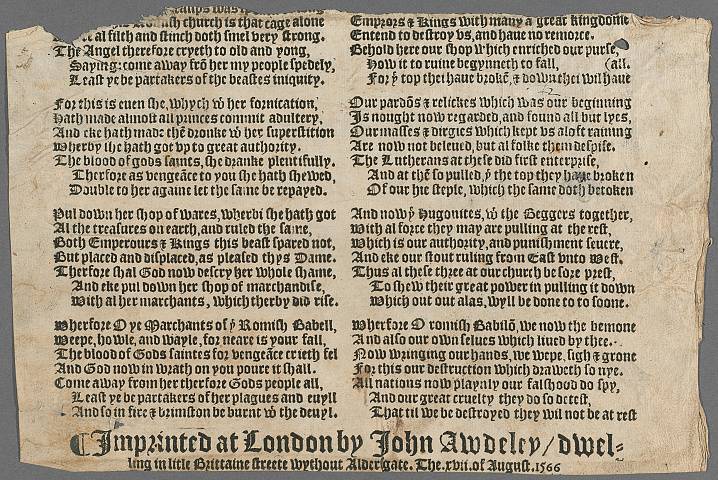 was
Romish church is that cage alone
al filth and stinch doth smel very strong.
The Angel therefore cryeth to old and yong,
Saying: come away frō her my people spedely,
Least ye be partakers of the beastes iniquity.
For this is euen she, whych wͭ her fornication,
Hath made almost all princes commit adultery,
And eke hath made thē drōke wͭ her superstition
Wherby she hath got vp to great authority.
The blood of gods saints, she dranke plentifully.
Therfore as vengeāce to you she hath shewed,
Double to her againe let the same be repayed.
Pul down her shop of wares, wherbi she hath got
Al the treasures on earth, and ruled the same,
Both Emperours & Kings this beast spared not,
But placed and displaced, as pleased thys Dame.
Therfore shal God now descry her whole shame,
And eke pul down her shop of marchandise,
With al her marchants, which therby did rise.
Wherfore O ye Marchants of yͤ Romish Babell,
Weepe, howle, and wayle, for neare is your fall,
The blood of Gods saintes for vengeāce crieth fel
And God now in wrath on you poure it shall.
Come away from her therfore Gods people all,
Least ye be partakers of her plagues and euyll
And so in fire & brimston be burnt wͭ the deuyl.
Emprors & Kings with many a great kingdome
Entend to destroy vs, and haue no remorce.
Behold here our shop which enriched our purse,
How it to ruine begynneth to fall,
(all.
For yͤ top thei haue brokē, & down thei wil haue
Our pardōs & relickes which was our beginning
Is nought now regarded, and found all but lyes,
Our masses & dirgies which kept vs aloft raining
Are now not beleued, but al folke them despise.
The Lutherans at these did first enterprise,
And at thē so pulled, yͭ the top they haue broken
Of our hie steple, which the same doth betoken
And now yͤ Hugonites, wͭ the Beggers together,
With al force they may are pulling at the rest,
Which is our authority, and punishment seuere,
And eke our stout ruling from East vnto West.
Thus al these three at our church be sore prest,
To shew their great power in pulling it down
Which out out alas, wyll be done to to soone.
Wherfore O romish Babilō, we now the bemone
And also our own selues which liued by thee.
Now wringing our hands, we wepe, sigh & grone
For this our destruction which draweth so nye.
All nations now playnly our falshood do spy,
And our great cruelty they do so detest,
That til we be destroyed they wil not be at rest
¶ Imprinted at London by John Awdeley / dwel-
ling in litle Brittaine streete wythout Aldersgate. The .xvii. of August. 1566